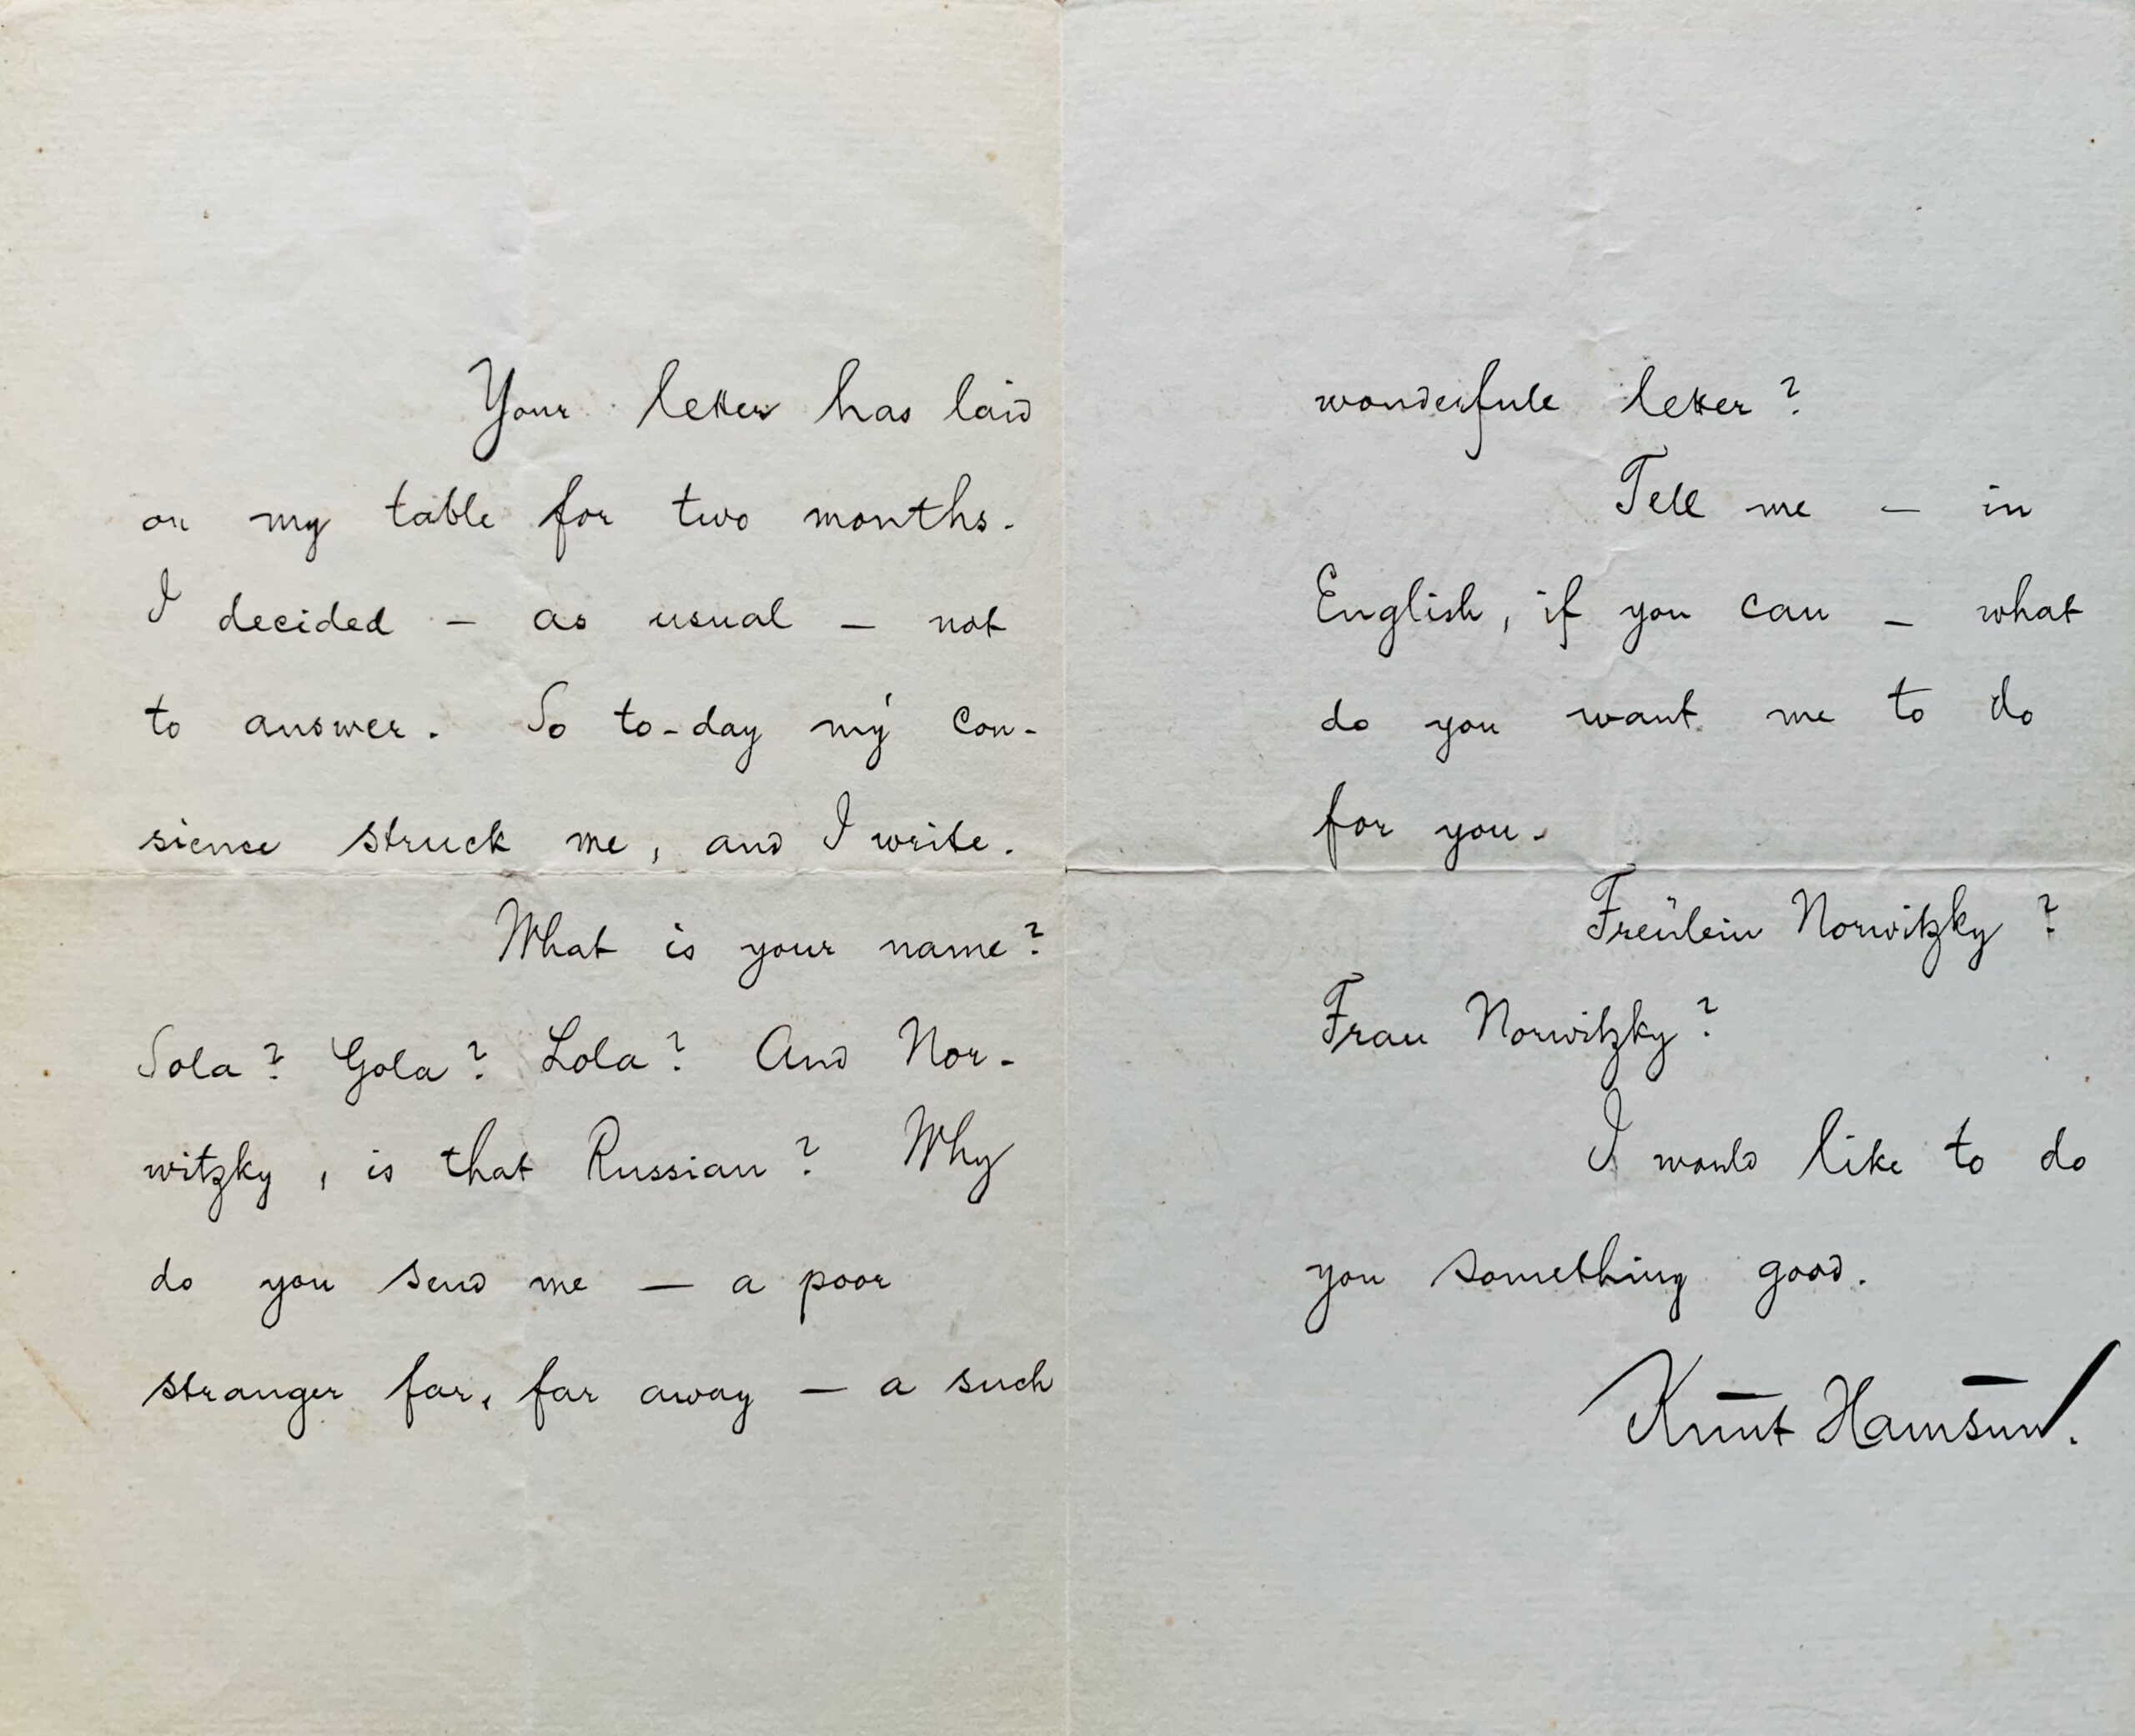 Your letter has laid
on my table for two months.
I decided – as usual – not
to answer. So to-day my con-
sience struck me, and I write.
What is your name?
Sola? Gola? Lola? And Nor-
witzky, is that Russian? Why
do you send me – a poor
stranger far, far away – a such
wonderfull letter?
Tell me – in
English, if you can – what
do you want me to do
for you.
Freülein Norwitzky?
Frau Norwitzky?
I would like to do
you something good.
Knut Hamsun.